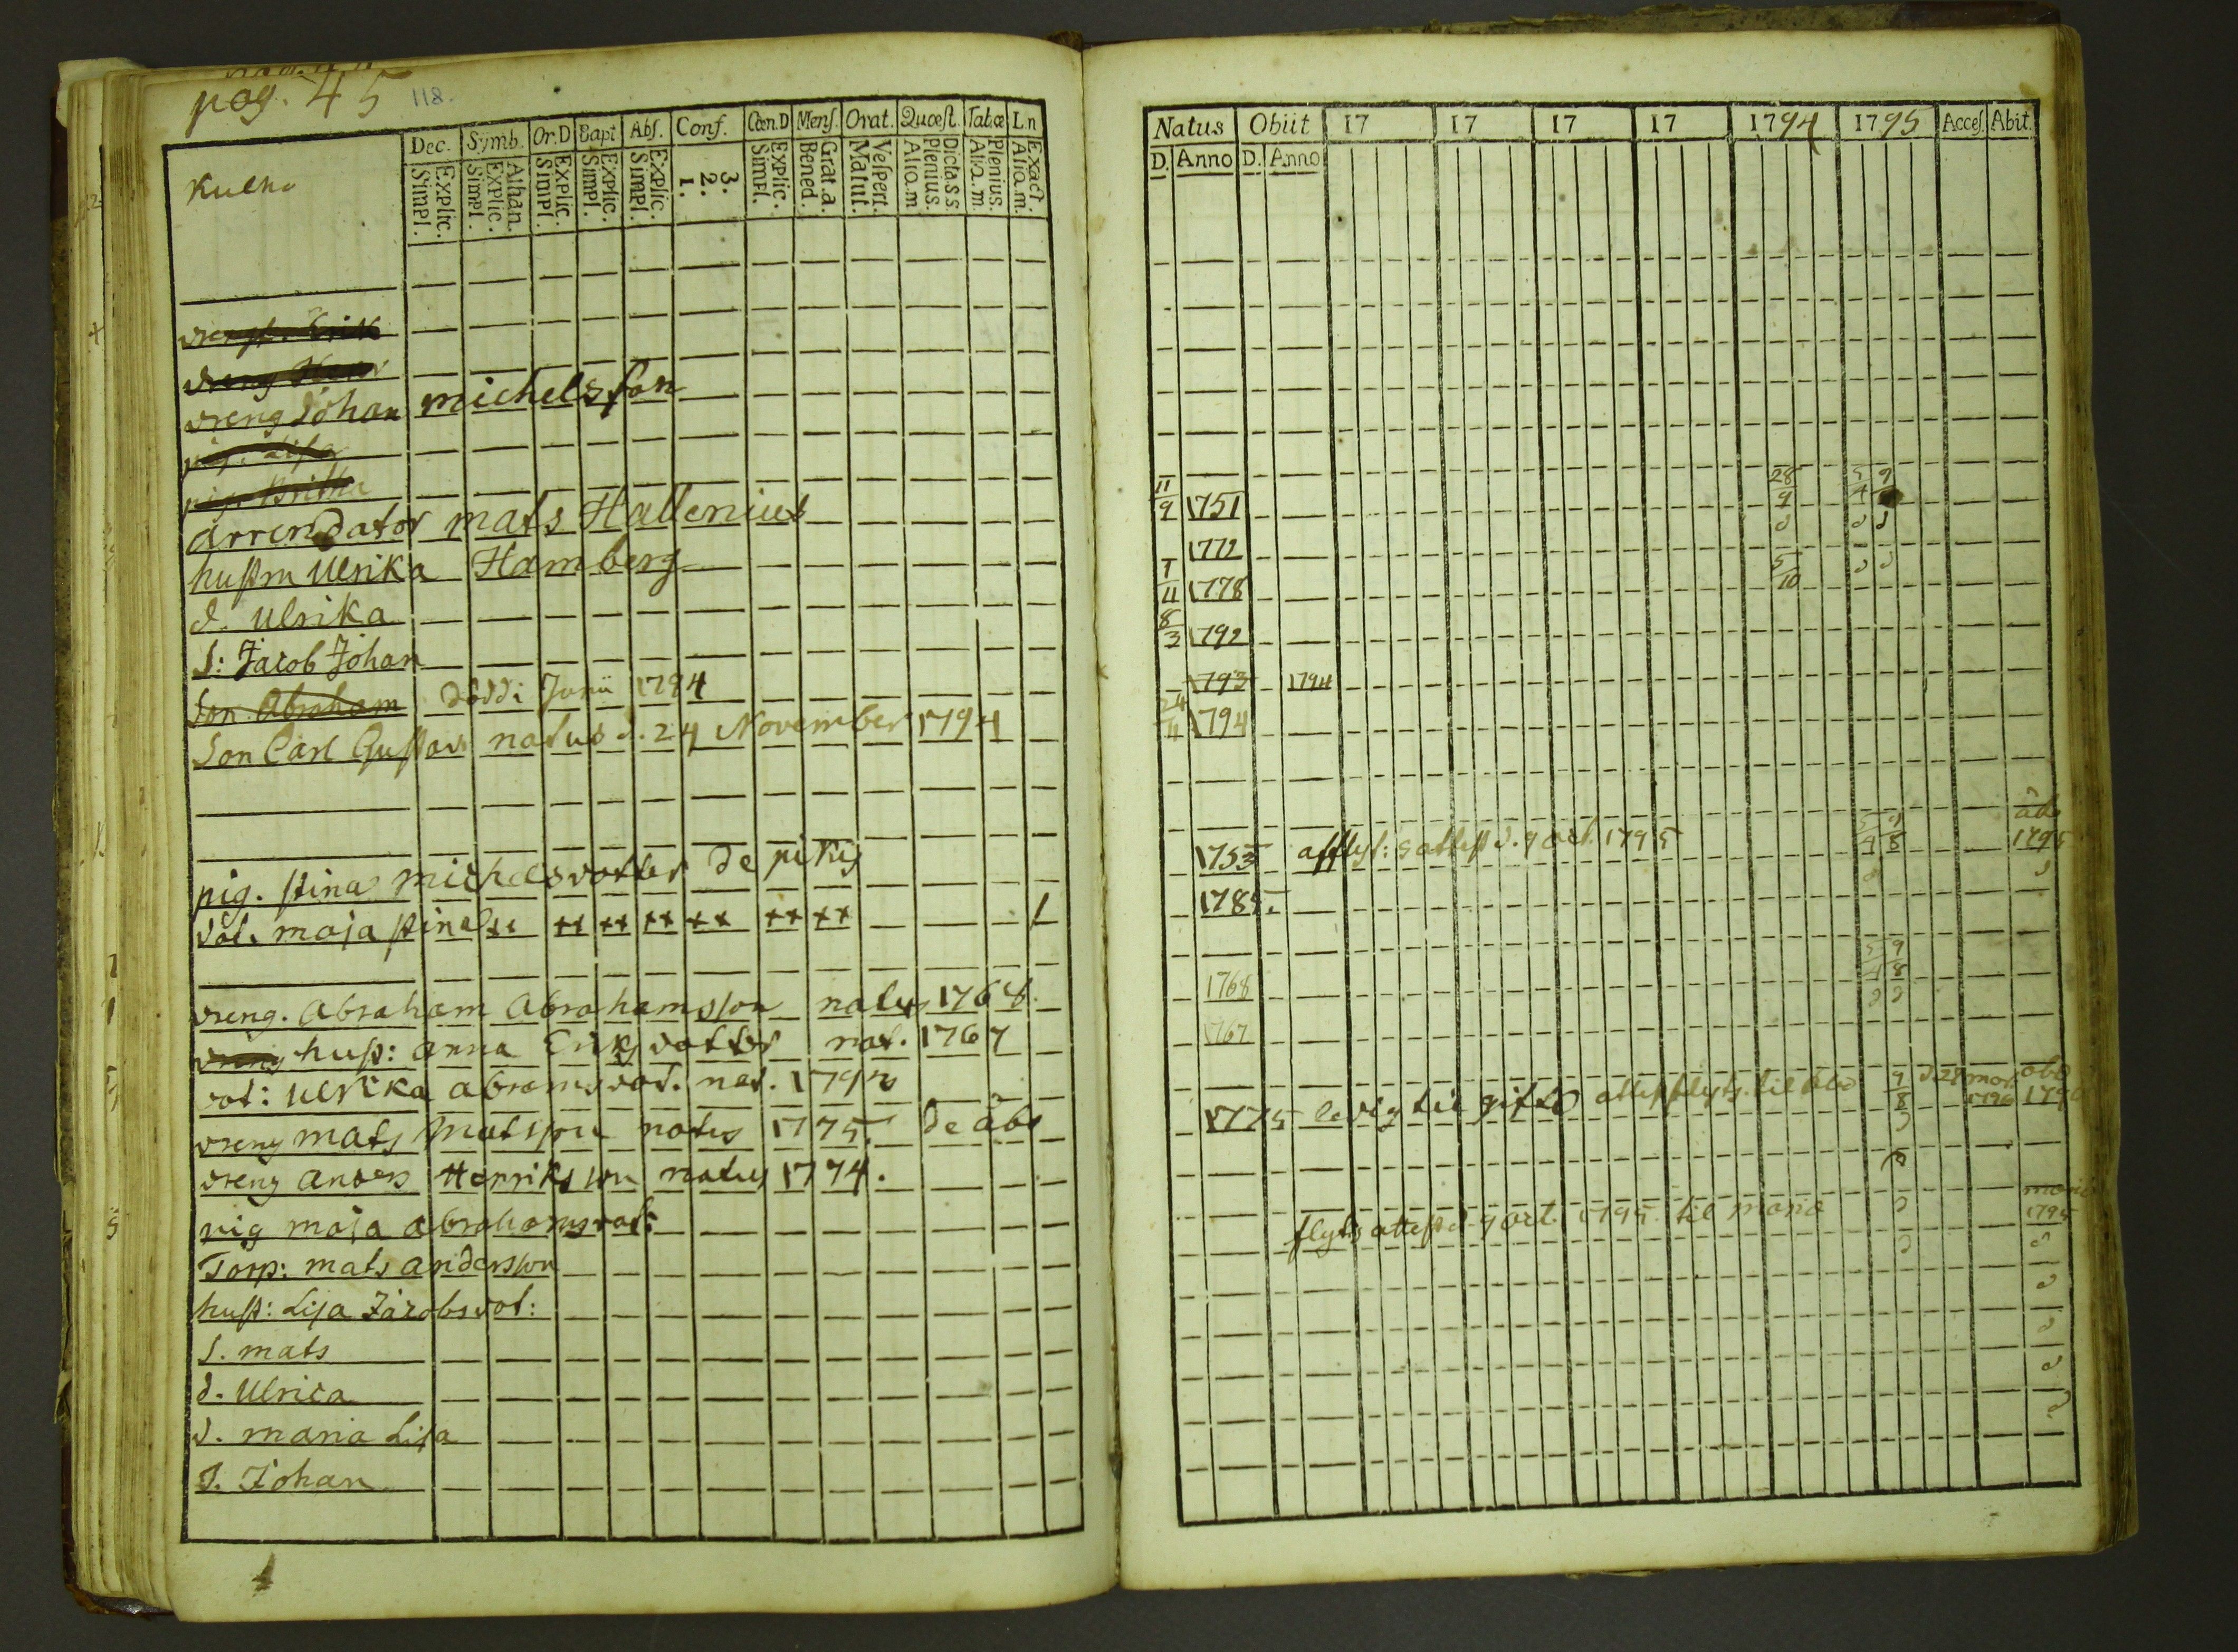 pag. 45 118.
Kulho
Dec. Symb. Or.D Bapt Abs. Conf. Cœn.D Mens. Orat. Quæst. Tab.æ L.n
Explic. Simpl. Athan. Explic. Simpl. Explic. Simpl. Explic. Simpl. Explic. Simpl. 3. 2. 1. Explic. Simpl. Grat.a. Bened. Vespert. Matut. Dicta.s.s. Plenius. Aliq.m. Plenius. Aliq.m. Exact. Aliq.m.
Erik
dreng
dreng Johan michelsson
pig. Lisa
pig. Britha
Arrendator mats Hallenius
hustru Ulrika Hamberg
d. Ulrika
S: Jacob Johan
Son Abraham död i Junii 1794
Son Carl Gustav natus d. 24 November 1794
pig. stina michelsdotter de pikis
dot. maja stina xx xx xx xx xx xx xx
dreng. Abraham Abrahamsson natus 1768.
dreng hust: anna Eriksdotter nat. 1767
dot: Ulrika abramsdot. nat. 1792
dreng mats matsson natus 1775. de åbo
dreng anders Henriksson natus 1774.
pig maja abrahamsdot:
Torp: mats andersson
hust: Lisa Jacobsdot:
S. mats
d. Ulrica
d. maria Lisa
S. Johan
Natus Obiit 17 17 17 17 1794 1795 Acces. Abit.
D. Anno D. Anno
11/9 1751 28/9 5/4 9
1772 d d d
7/11 1778 5/10 d d
8/3 1792
1793 1794
24/11 1794
1753 afflyt: s attest d. 9 oct. 1795 5/4 9/8 åbo 1795
1785. d d
1768 5/4 9/8
1767 d d
1775 ledig til gifte attest flyts. til åbo 9/8 d. 28 mar. 1796 åbo 1796
d
flyts attest d. 9 oct. 1795 til maria d maria 1795
d d
d
d
d
d